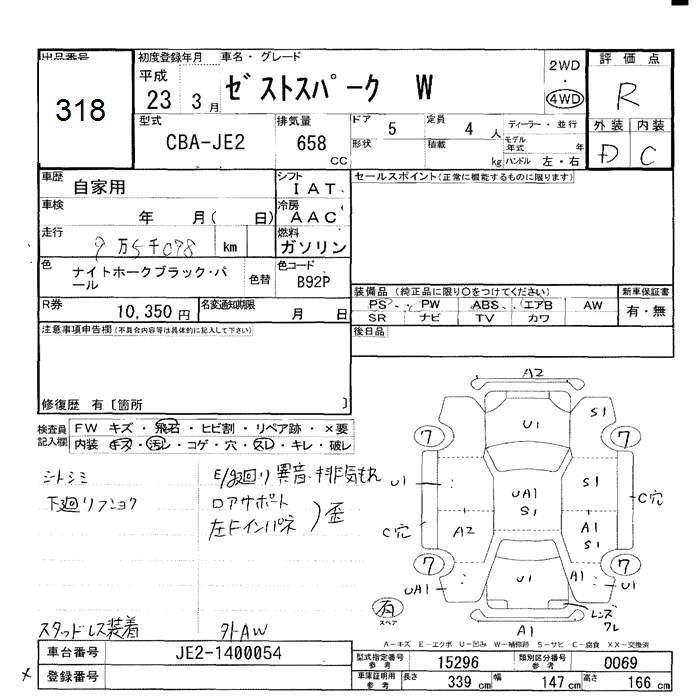 出品番号
318
初度登録年月
平成
23 3月
車名・グレード
ゼストスパーク W
2WD
・
4WD
評価点
R
外装 内装
D C
型式
CBA-JE2
排気量
658
CC
ドア
5
形状
定員
4 人
積載
kg
ディーラー・並行
モデル年式 年
ハンドル 左・右
車歴
自家用
シフト
IAT
車検
年 月( 日)
冷房
AAC
走行
9万5千098 km
燃料
ガソリン
色
ナイトホークブラック・パール
色替
色コード
B92P
R券
10,350円
名変通知期限
月 日
セールスポイント(正常に機能するものに限ります)
装備品(純正品に限り○をつけてください)
PS PW ABS エアB AW
SR ナビ TV カワ
新車保証書
有・無
後日品
注意事項申告欄(不具合内容等は具体的に記入して下さい)
修復歴 有〔箇所 〕
検査員記入欄
FW キズ・飛石・ヒビ割・リペア跡・×要
内装 キズ・汚レ・コゲ・穴・スレ・キレ・破レ
シートシミ
下廻りフショク
E/g廻り異音・排気もれ
ロアサポート
左Fインパネ
)歪
スタッドレス装着
外AW
A2
U1
S1
7
7
U1
UA1
S1
S1
C穴
C穴
A2
A1
S1
7
7
UA1
U1
A1
U1
有
スペア
レンズワレ
A1
A-キズ E-エクボ U-凹み W-補修跡 S-サビ C-腐食 XX-交換済
車台番号
JE2-1400054
登録番号
×
型式指定番号 参考
15296
類別区分番号 参考
0069
車庫証明用 参考
長さ 339 cm
幅 147 cm
高さ 166 cm